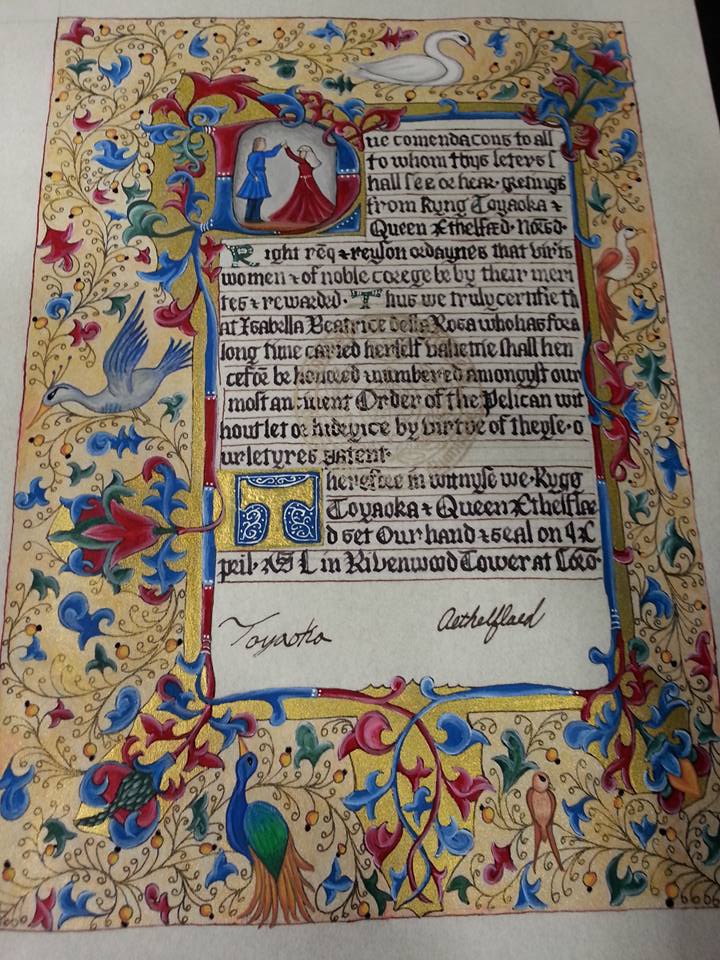 Due comendacons to all
to whom thys leters s
hall see or hear gretings
from Kyng Toyaoka &
Queen Æthelflæd
Right req & reyson ordaynes that virts
women & of noble corege be by their meri
tes & rewarded. Thus we truly certifie th
at Isabella Beatrice della Rosa who has for a
long time caried herself valientlie shall hen
cefoe be honored & numbered amongyst our
most an:ient Order of the Pelican wit
hout let or by virtue of theyse o
ur letyres patent.
Therefore in witnyse we Kyng
Toyaoka & Queen Æthelflæ
d set Our hand & seal on 4 A
pril AS L in Rivenwood Tower at Coro.
Toyaoka Aethelflaed